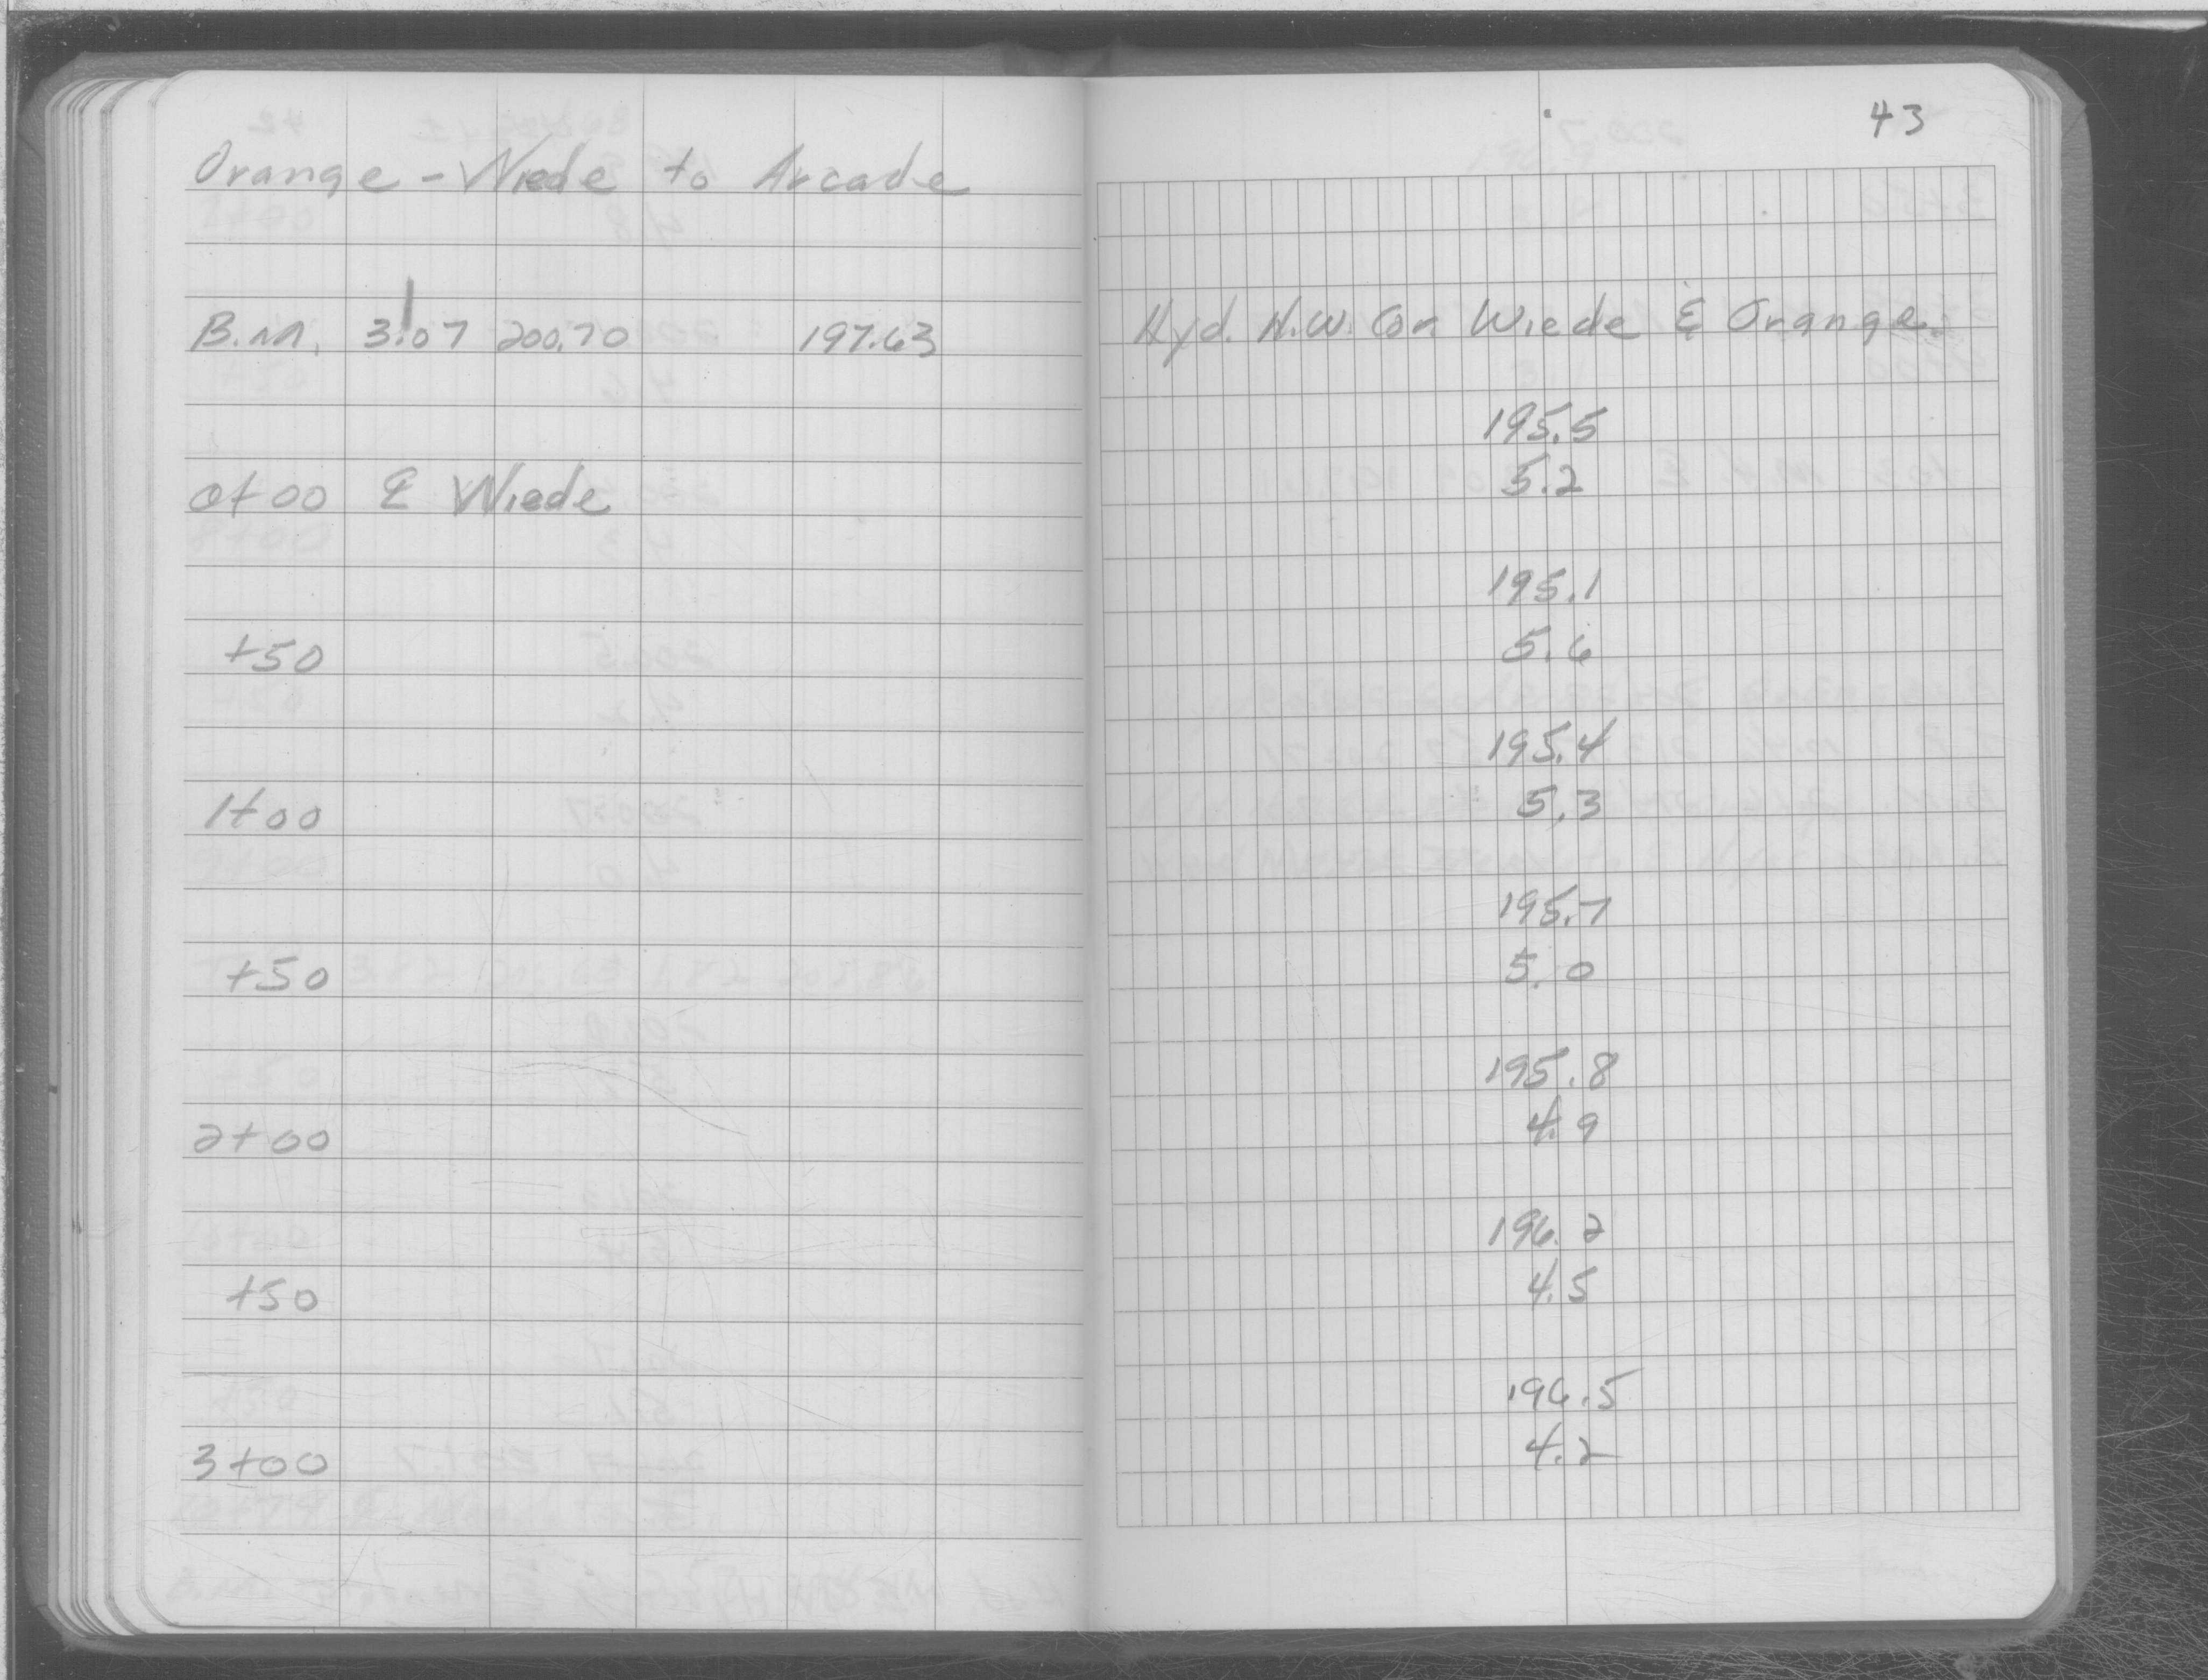 43
Orange - Wiede to Arcade
B.M. 3.07 200.70 197.63 Hyd. N.W. Cor. Wiede & Orange
195.5
0+00 ℄ Wiede 5.2
195.1
+50 5.6
195.4
1+00 5.3
195.7
+50 5.0
195.8
2+00 4.9
196.2
+50 4.5
196.5
3+00 4.2